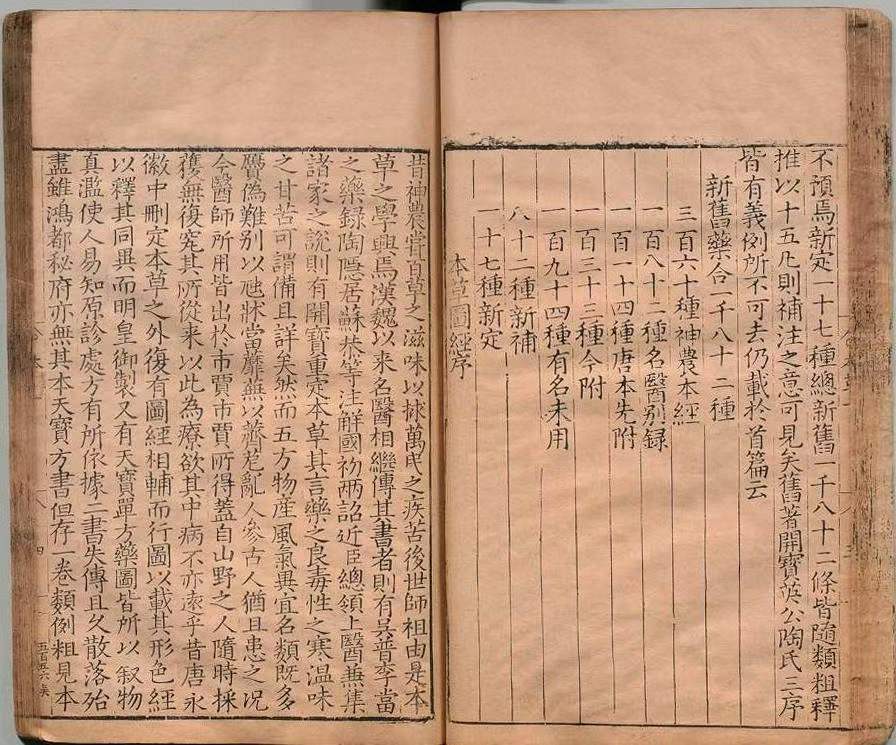 不預焉新定一十七種總新舊一千八十二條皆隨類粗釋
推以十五凡則補注之意可見矣舊著開寶英公陶氏三序
皆有義例所不可去仍載於首篇云
新舊藥合一千八十二種
三百六十種神農本經
一百八十二種名醫別録
一百一十四種唐本先附
一百三十三種今附
一百九十四種有名未用
八十二種新補
一十七種新定
本草圖經序
昔神農嘗百草之滋味以拯萬民之疾苦後世師祖由是本
草之學興焉漢魏以来名醫相繼傳其書者則有吴普李當
之藥録陶隱居蘇恭等注解國初兩詔近臣總領上醫兼集
諸家之說則有開寶重定本草其言藥之良毒性之寒温味
之甘苦可謂備且詳矣然而五方物産風氣異宜名類既多
贋偽難別以虺牀當蘼蕪以薺苨亂人參古人猶且患之况
今醫師所用皆出於市賈市賈所得蓋自山野之人隨時採
穫無復究其所從来以此為療欲其中病不亦逺乎昔唐永
徽中刪定本草之外復有圖經相輔而行圖以載其形色經
以釋其同異而明皇御製又有天寶單方藥圖皆所以叙物
真濫使人易知原診處方有所依據二書失傳且乆散落殆
盡雖鴻都秘府亦無其本天寶方書但存一卷類例粗見本
四